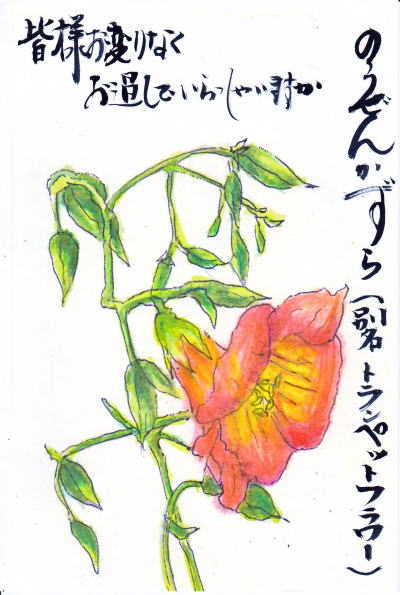 皆様お変りなく
お過しでいらっしゃいますか
のうぜんかずら(別名トランペットフラワー)